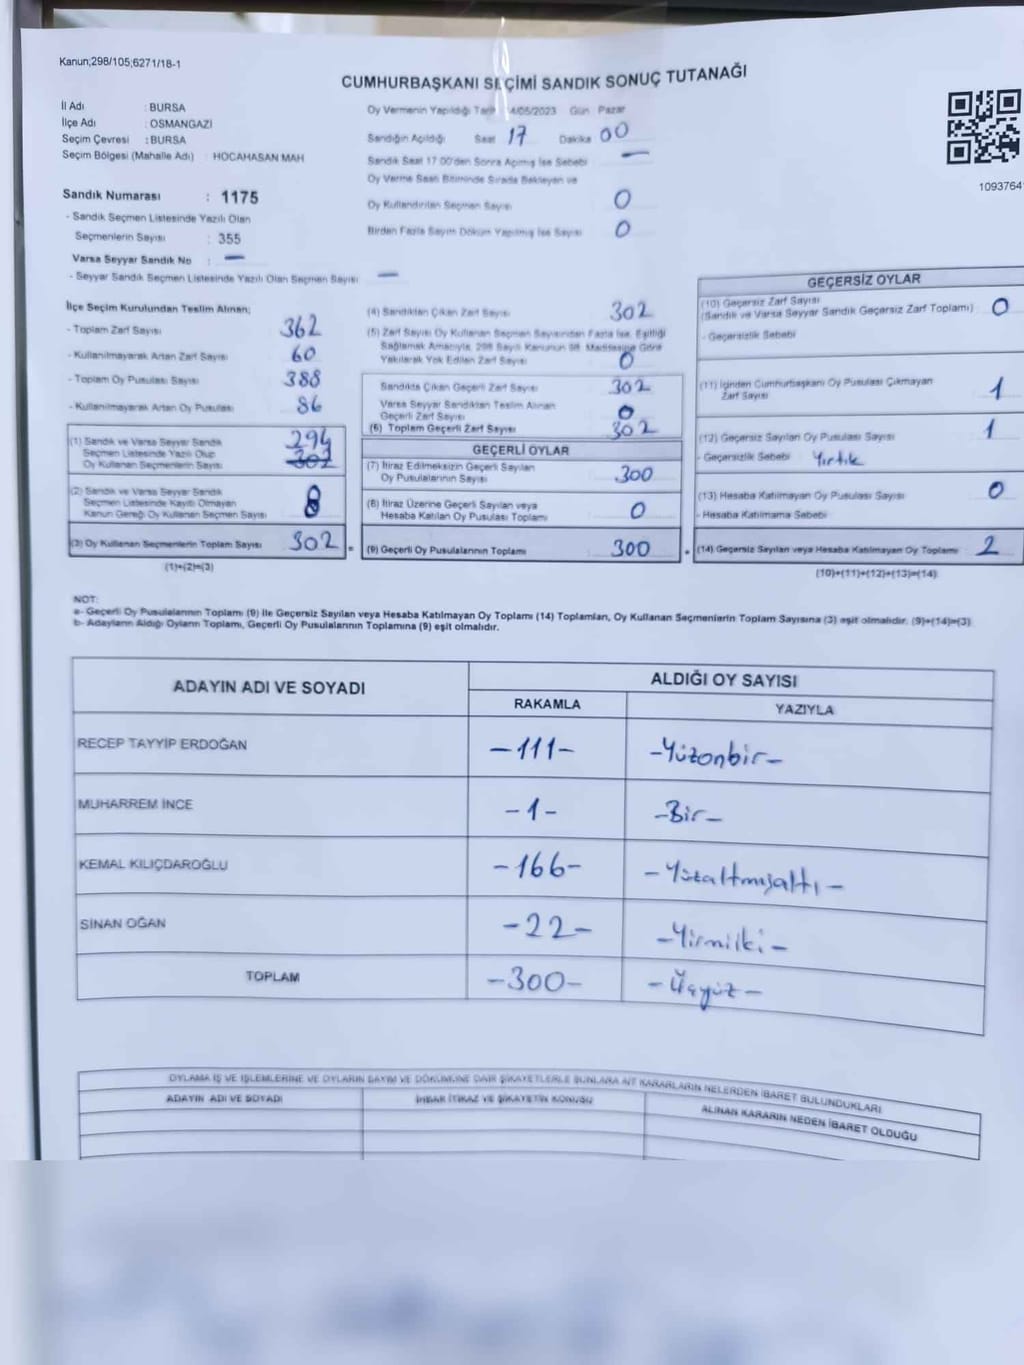 Kanun;298/105;6271/18-1
CUMHURBAŞKANI SEÇİMİ SANDIK SONUÇ TUTANAĞI
İl Adı : BURSA
İlçe Adı : OSMANGAZİ
Seçim Çevresi : BURSA
Seçim Bölgesi (Mahalle Adı) : HOCAHASAN MAH
Oy Vermenin Yapıldığı Tarih 14/05/2023 Gün Pazar
Sandığın Açıldığı Saat 17 Dakika 00
Sandık Saat 17.00'den Sonra Açılmış İse Sebebi —
Oy Verme Saati Bitiminde Sırada Bekleyen ve
Oy Kullandırılan Seçmen Sayısı 0
Birden Fazla Sayım Döküm Yapılmış İse Sayısı 0
1093764
Sandık Numarası : 1175
- Sandık Seçmen Listesinde Yazılı Olan
Seçmenlerin Sayısı : 355
Varsa Seyyar Sandık No : —
- Seyyar Sandık Seçmen Listesinde Yazılı Olan Seçmen Sayısı —
İlçe Seçim Kurulundan Teslim Alınan;
- Toplam Zarf Sayısı 362
- Kullanılmayarak Artan Zarf Sayısı 60
- Toplam Oy Pusulası Sayısı 388
- Kullanılmayarak Artan Oy Pusulası 86
(1) Sandık ve Varsa Seyyar Sandık
Seçmen Listesinde Yazılı Olup
Oy Kullanan Seçmenlerin Sayısı
294
302
(2) Sandık ve Varsa Seyyar Sandık
Seçmen Listesinde Kayıtlı Olmayan
Kanun Gereği Oy Kullanan Seçmen Sayısı
8
(3) Oy Kullanan Seçmenlerin Toplam Sayısı 302 =
(1)+(2)=(3)
(4) Sandıktan Çıkan Zarf Sayısı 302
(5) Zarf Sayısı Oy Kullanan Seçmen Sayısından Fazla İse, Eşitliği
Sağlamak Amacıyla, 298 Sayılı Kanunun 98. Maddesine Göre
Yakılarak Yok Edilen Zarf Sayısı 0
Sandıkta Çıkan Geçerli Zarf Sayısı 302
Varsa Seyyar Sandıktan Teslim Alınan
Geçerli Zarf Sayısı 0
(6) Toplam Geçerli Zarf Sayısı 302
GEÇERLİ OYLAR
(7) İtiraz Edilmeksizin Geçerli Sayılan
Oy Pusulalarının Sayısı 300
(8) İtiraz Üzerine Geçerli Sayılan veya
Hesaba Katılan Oy Pusulası Toplamı 0
(9) Geçerli Oy Pusulalarının Toplamı 300
GEÇERSİZ OYLAR
(10) Geçersiz Zarf Sayısı
(Sandık ve Varsa Seyyar Sandık Geçersiz Zarf Toplamı) 0
- Geçersizlik Sebebi
(11) İçinden Cumhurbaşkanı Oy Pusulası Çıkmayan
Zarf Sayısı 1
(12) Geçersiz Sayılan Oy Pusulası Sayısı 1
- Geçersizlik Sebebi Yırtık
(13) Hesaba Katılmayan Oy Pusulası Sayısı 0
- Hesaba Katılmama Sebebi
(14) Geçersiz Sayılan veya Hesaba Katılmayan Oy Toplamı 2
(10)+(11)+(12)+(13)=(14)
NOT:
a- Geçerli Oy Pusulalarının Toplamı (9) ile Geçersiz Sayılan veya Hesaba Katılmayan Oy Toplamı (14) Toplamları, Oy Kullanan Seçmenlerin Toplam Sayısına (3) eşit olmalıdır. (9)+(14)=(3)
b- Adayların Aldığı Oyların Toplamı, Geçerli Oy Pusulalarının Toplamına (9) eşit olmalıdır.
ADAYIN ADI VE SOYADI
ALDIĞI OY SAYISI
RAKAMLA YAZIYLA
RECEP TAYYİP ERDOĞAN -111- -Yüzonbir-
MUHARREM İNCE -1- -Bir-
KEMAL KILIÇDAROĞLU -166- -Yüzaltmışaltı-
SİNAN OĞAN -22- -Yirmiiki-
TOPLAM -300- -Üçyüz-
OYLAMA İŞ VE İŞLEMLERİNE VE OYLARIN SAYIM VE DÖKÜMÜNE DAİR ŞİKAYETLERLE BUNLARA AİT KARARLARIN NELERDEN İBARET BULUNDUKLARI
ADAYIN ADI VE SOYADI
İHBAR İTİRAZ VE ŞİKAYETİN KONUSU
ALINAN KARARIN NEDEN İBARET OLDUĞU